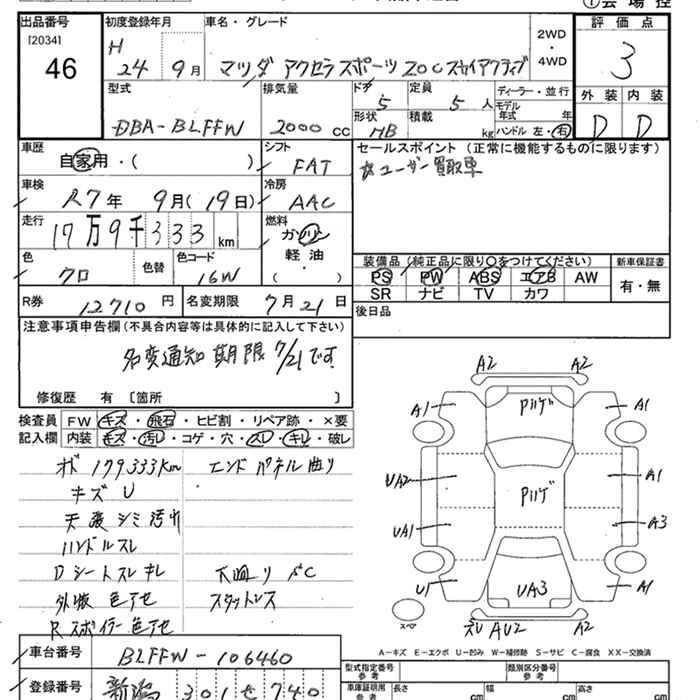 出品番号
[2034]
46
初度登録年月
H 24年 9月
車名・グレード
マツダ アクセラスポーツ 20C スカイアクティブ
2WD
・
4WD
評価点
3
外装 内装
D D
型式
DBA-BLFFW
排気量
2000 CC
ドア 5
定員 5人
形状 HB
積載 kg
ディーラー・並行
モデル年式 年
ハンドル 左・右
車歴
自家用・( )
シフト
FAT
車検
R7年 9月(19日)
冷房
AAC
走行
17万9千333km
燃料
ガソリン
軽油
( )
色
クロ
色替
色コード
16W
R券 12710円
名変期限 7月21日
セールスポイント(正常に機能するものに限ります)
☆ユーザー買取車
装備品(純正品に限り○をつけてください)
新車保証書
PS PW ABS エアB AW
有・無
SR ナビ TV カワ
後日品
注意事項申告欄(不具合内容等は具体的に記入して下さい)
名変通知期限7/21です
修復歴 有〔箇所 〕
検査員
記入欄
FW キズ・飛石・ヒビ割・リペア跡・×要
内装 キズ・汚レ・コゲ・穴・スレ・キレ・破レ
メーター 179333km
キズU
天張シミ汚れ
ハンドルスレ
Dシートスレキレ
外板色アセ
Rスポイラー色アセ
エンドパネル曲り
下廻りSC
スタットレス
A2 A2
A1 Pハゲ A1
UA2 A1
Pハゲ
UA1 A3
U1 UA3 A1
スペア
AU2 A2
A-キズ E-エクボ U-凹み W-補修跡 S-サビ C-腐食 XX-交換済
車台番号
BLFFW-106460
登録番号
新潟 301 740
型式指定番号
参考
類別区分番号
参考
車庫証明用
参考
長さ cm
幅 cm
高さ cm